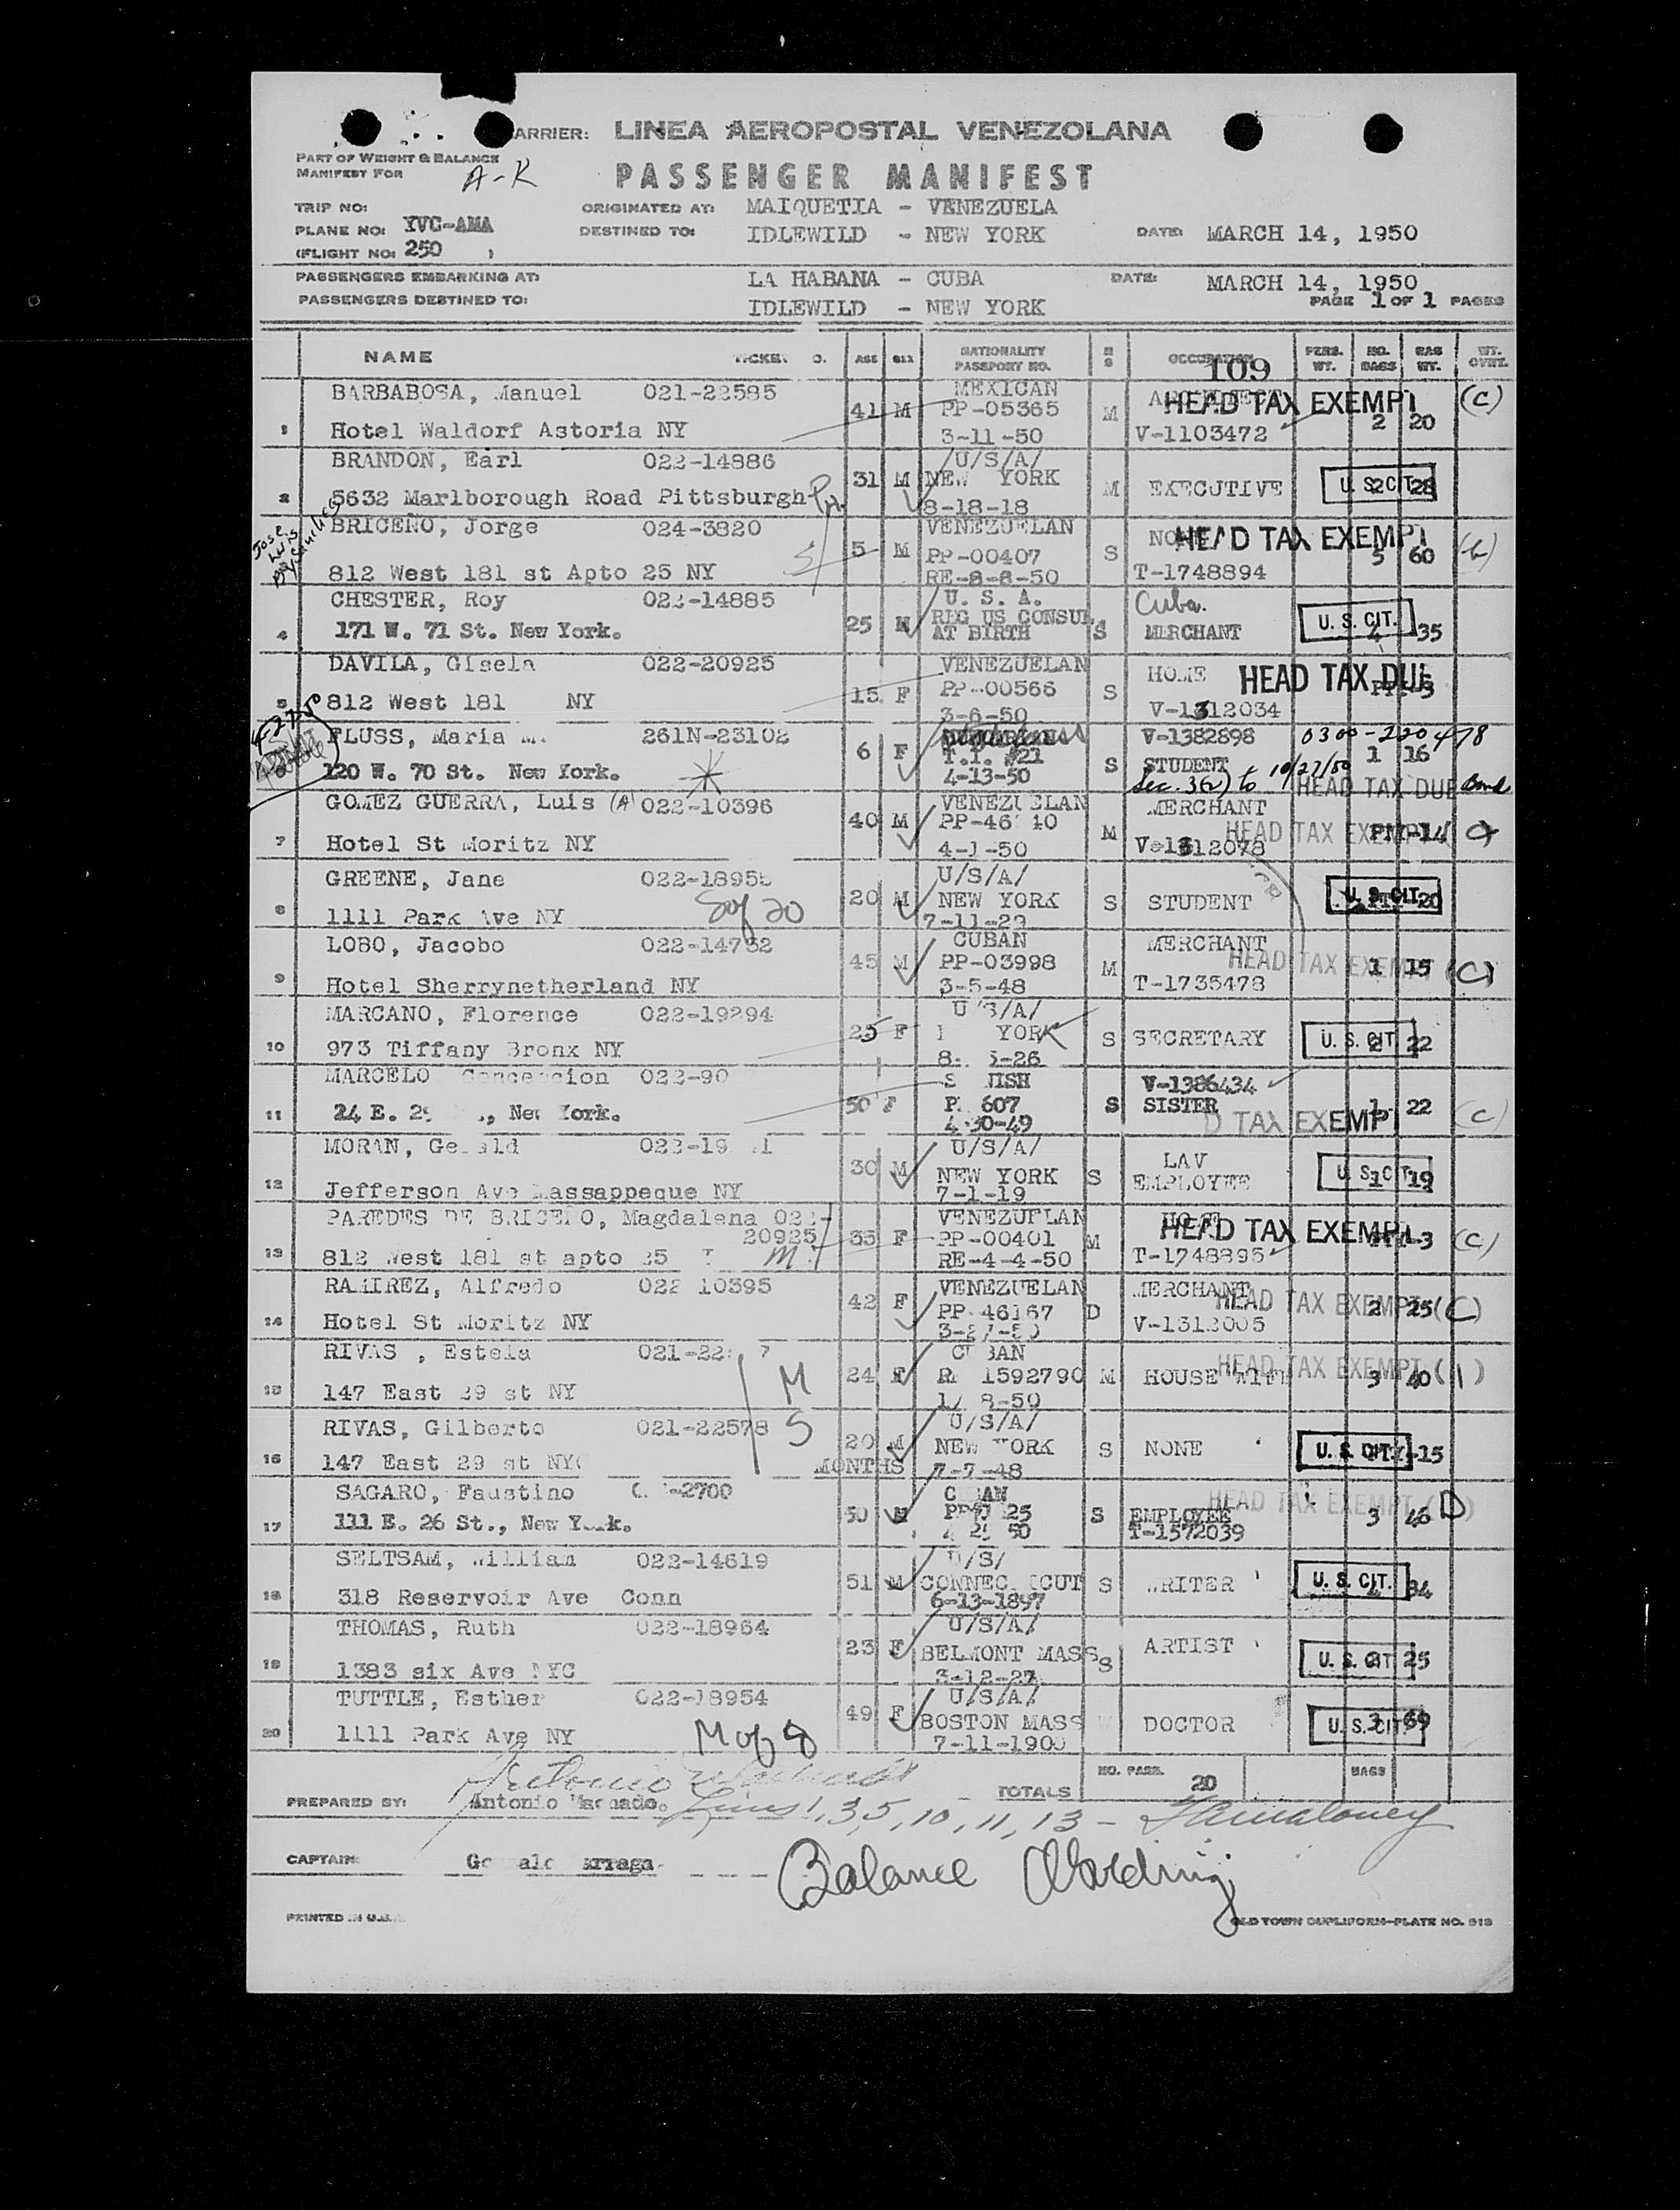 CARRIER: LINEA AEROPOSTAL VENEZOLANA
PART OF WEIGHT & BALANCE
MANIFEST FOR A-K PASSENGER MANIFEST
TRIP NO: ORIGINATED AT: MAIQUETIA - VENEZUELA
PLANE NO: YVC-AMA DESTINED TO: IDLEWILD - NEW YORK DATE: MARCH 14, 1950
(FLIGHT NO: 250 )
PASSENGERS EMBARKING AT: LA HABANA - CUBA DATE: MARCH 14, 1950
PASSENGERS DESTINED TO: IDLEWILD - NEW YORK PAGE 1 OF 1 PAGES
NAME TICKET O. AGE SEX NATIONALITY PASSPORT NO. M S OCCUPATION PERS. WT. NO. BAGS BAG WT. WT. OVHT.
109
BARBABOSA, Manuel 021-22585 MEXICAN HEAD TAX EXEMPT (C)
41 M PP-05365 M 2 20
1 Hotel Waldorf Astoria NY 3-11-50 V-1103472
BRANDON, Earl 022-14886 U/S/A/
31 M NEW YORK M EXECUTIVE U. S. CIT. 2 28
2 5632 Marlborough Road Pittsburgh Pa. 8-18-18
BRICEÑO, Jorge 024-3820 VENEZUELAN HEAD TAX EXEMPT
Jose Luis
5 M PP-00407 S 5 60
812 West 181 st Apto 25 NY RE-8-8-50 T-1748894
CHESTER, Roy 022-14885 U. S. A. Cuba.
25 M REG US CONSUL S U. S. CIT. 4 35
4 171 W. 71 St. New York. AT BIRTH MERCHANT
DAVILA, Gisela 022-20925 VENEZUELAN HOME HEAD TAX DUE
15 F PP-00566 S
5 812 West 181 NY 3-6-50 V-1312034
FLUSS, Maria M. 261N-23102 V-1382898 0300-220478
6 F T.I. #21 S STUDENT 1 16
120 W. 70 St. New York. 4-13-50 Sec. 3(2) to 10/27/50 HEAD TAX DUE Bond
GOMEZ GUERRA, Luis (A) 022-10396 VENEZUELAN MERCHANT
40 M PP-46 40 M HEAD TAX EXEMPT
7 Hotel St Moritz NY 4-1-50 V-1312078
GREENE, Jane 022-18955 U/S/A/
20 M NEW YORK S STUDENT U. S. CIT. 20
8 1111 Park Ave NY S of 20 7-11-29
LOBO, Jacobo 022-14762 CUBAN MERCHANT
45 M PP-03998 M HEAD TAX EXEMPT 1 15 (C)
9 Hotel Sherrynetherland NY 3-5-48 T-1735478
MARCANO, Florence 022-19294 U/S/A/
25 F YORK S SECRETARY U. S. CIT. 2 22
10 973 Tiffany Bronx NY 8- 5-26
MARCELO Concepcion 022-90 S NISH V-1386434
50 F P 607 S SISTER 1 22
11 24 E. 29 ., New York. 4-30-49 D TAX EXEMPT (C)
MORAN, Gerald 022-19 1 U/S/A/ LAV
30 M NEW YORK S EMPLOYEE U. S. CIT. 1 19
12 Jefferson Ave Massappeque NY 7-1-19
PAREDES DE BRICEÑO, Magdalena 022- VENEZUELAN HOME
20925 33 F PP-00401 M HEAD TAX EXEMPT (C)
13 812 West 181 st apto 25 M RE-4-4-50 T-1748895
RAMIREZ, Alfredo 022 10395 VENEZUELAN MERCHANT
42 F PP 46167 D HEAD TAX EXEMPT 2 25 (C)
14 Hotel St Moritz NY V-1312005
RIVAS , Estela 021-22 7 CUBAN HEAD TAX EXEMPT (1)
24 F 1592790 M HOUSE WIFE 3 40
15 147 East 29 st NY M 8-50
RIVAS, Gilberto 021-22578 S U/S/A/
20 M NEW YORK S NONE U. S. CIT. 15
16 147 East 29 st NYC MONTHS 7-7-48
SAGARO, Faustino -2700 CUBAN HEAD TAX EXEMPT (D)
50 M S EMPLOYEE 3 46
17 111 E. 26 St., New York. T-1572039
SELTSAM, William 022-14619 U/S/
51 M CONNECTICUT S WRITER U. S. CIT. 34
18 318 Reservoir Ave Conn 6-13-1897
THOMAS, Ruth 022-18964 U/S/A/
23 F BELMONT MASS S ARTIST U. S. CIT. 25
19 1383 six Ave NYC 3-12-27
TUTTLE, Esther 022-18954 U/S/A/
49 F BOSTON MASS DOCTOR U. S. CIT.
20 1111 Park Ave NY M of 8 7-11-1900
NO. PASS. 20 BAGS
TOTALS
PREPARED BY: Antonio Machado. Lines 1,3,5,10,11,13 -
CAPTAIN: Balance
PRINTED IN U.S. OLD TOWN DUPLIFORM-PLATE NO. 913